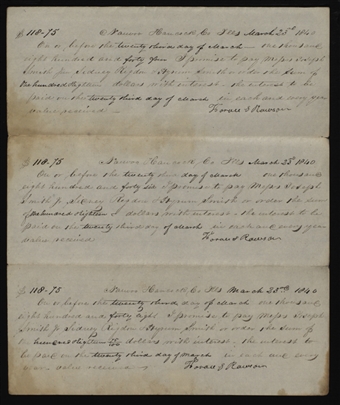 $118-75 Nauvoo Hancock Co Ills March 23rd 1840
On or before the twenty third day of March one thousand
eight hundred and forty I promise to pay Messrs Joseph
Smith Jr Sidney Rigdon & Hyrum Smith or order the sum of
One hundred Eighteen dollars with interest the interest to be
paid on the twenty third day of March in each and every year
value received
Horace S Rawson
$118-75 Nauvoo Hancock Co Ills March 23rd 1840
On or before the twenty third day of March one thousand
eight hundred and forty six I promise to pay Messrs Joseph
Smith Jr Sidney Rigdon & Hyrum Smith or order the sum
of hundred Eighteen dollars with interest the interest to be
paid on the twenty third day of March in each and every year
value received
Horace S Rawson
$118-75 Nauvoo Hancock Co Ills March 23rd 1840
On or before the twenty third day of March one thousand
eight hundred and forty eight I promise to pay Messrs Joseph
Smith Jr Sidney Rigdon & Hyrum Smith or order the sum of
One hundred Eighteen 75/100 dollars with interest the interest to
be paid on the twenty third day of March in each and every
year value received
Horace S Rawson